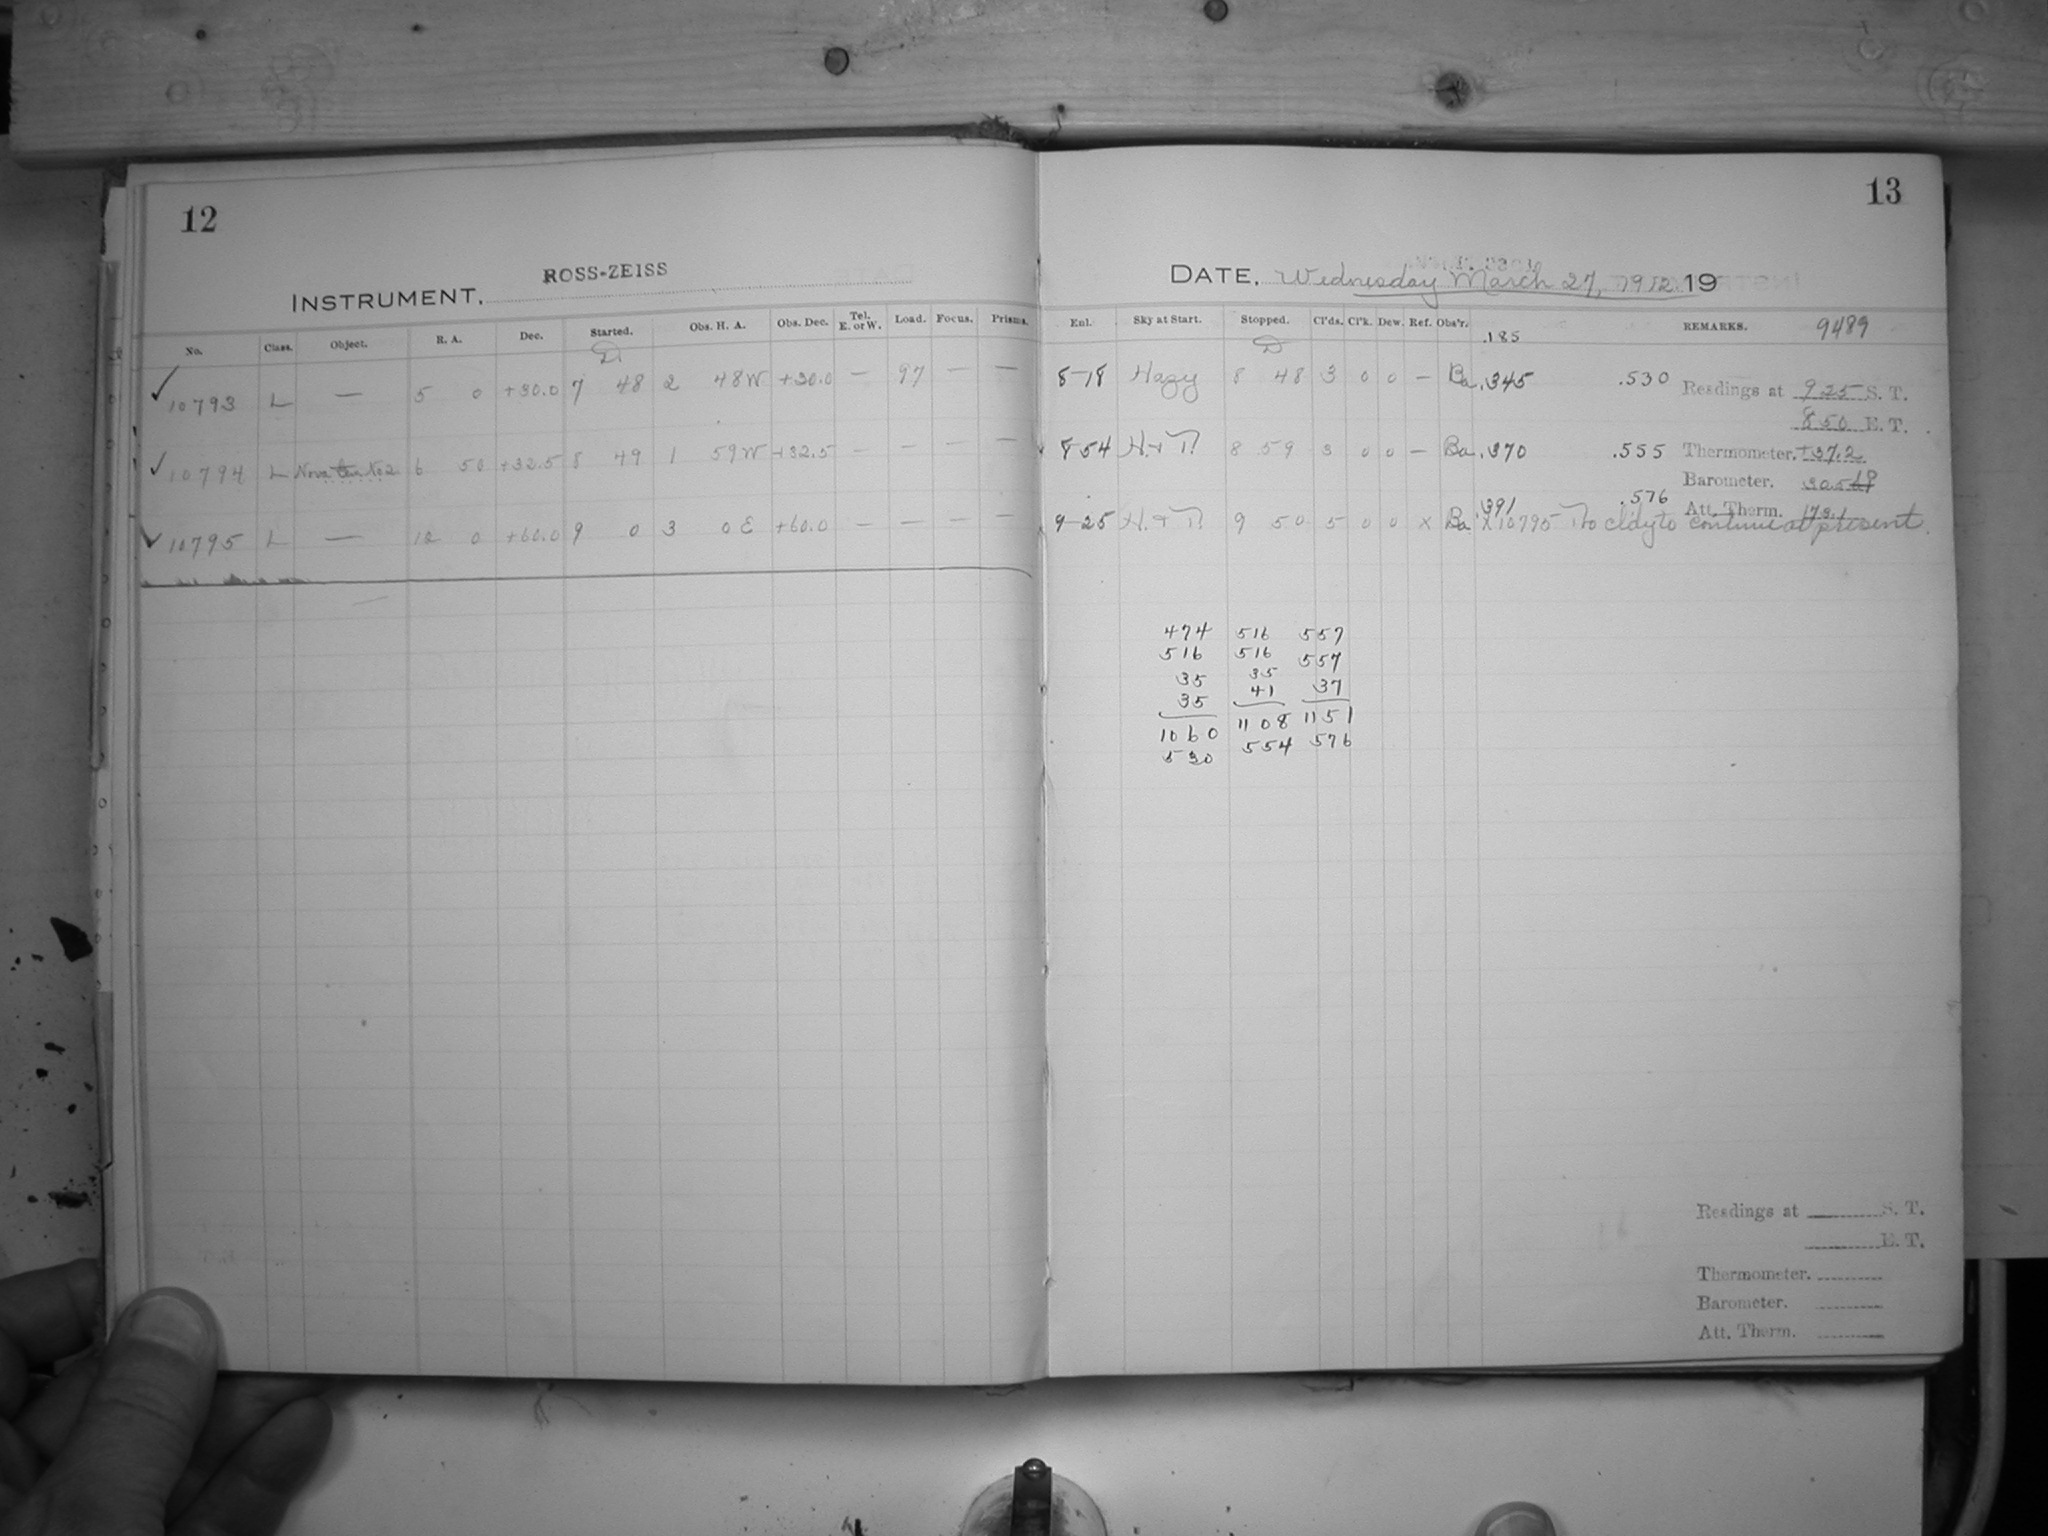 12
ROSS-ZEISS
INSTRUMENT,
No. Class. Object. R. A. Dec. Started. Obs. H. A. Obs. Dec. Tel. E. or W. Load. Focus. Prisms.
D
✓ 10793 L — 5 0 +30.0 7 48 2 48W +30.0 — 97 — —
✓ 10794 L Nova Gem No2 6 50 +32.5 8 49 1 59W +32.5 — — — —
✓ 10795 L — 12 0 +60.0 9 0 3 0E +60.0 — — — —
13
DATE, Wednesday March 27, 1912 19
Enl. Sky at Start. Stopped. Cl'ds. Cl'k. Dew. Ref. Obs'r. REMARKS. 9489
D .185
8-18 Hazy 8 48 3 0 0 — Ba .345 .530
Readings at 9 25 S. T.
8 50 E. T.
8 54 H. + Th. 8 59 3 0 0 — Ba .370 .555
Thermometer. +37.2
Barometer.
Att. Therm. 173.1
.391 .576
9-25 H. + Th. 9 50 5 0 0 x Ba x 10795 Too cldy to continue at present.
474 516 557
516 516 557
35 35 37
35 41
1060 1108 1151
530 554 576
Readings at S. T.
E. T.
Thermometer.
Barometer.
Att. Therm.